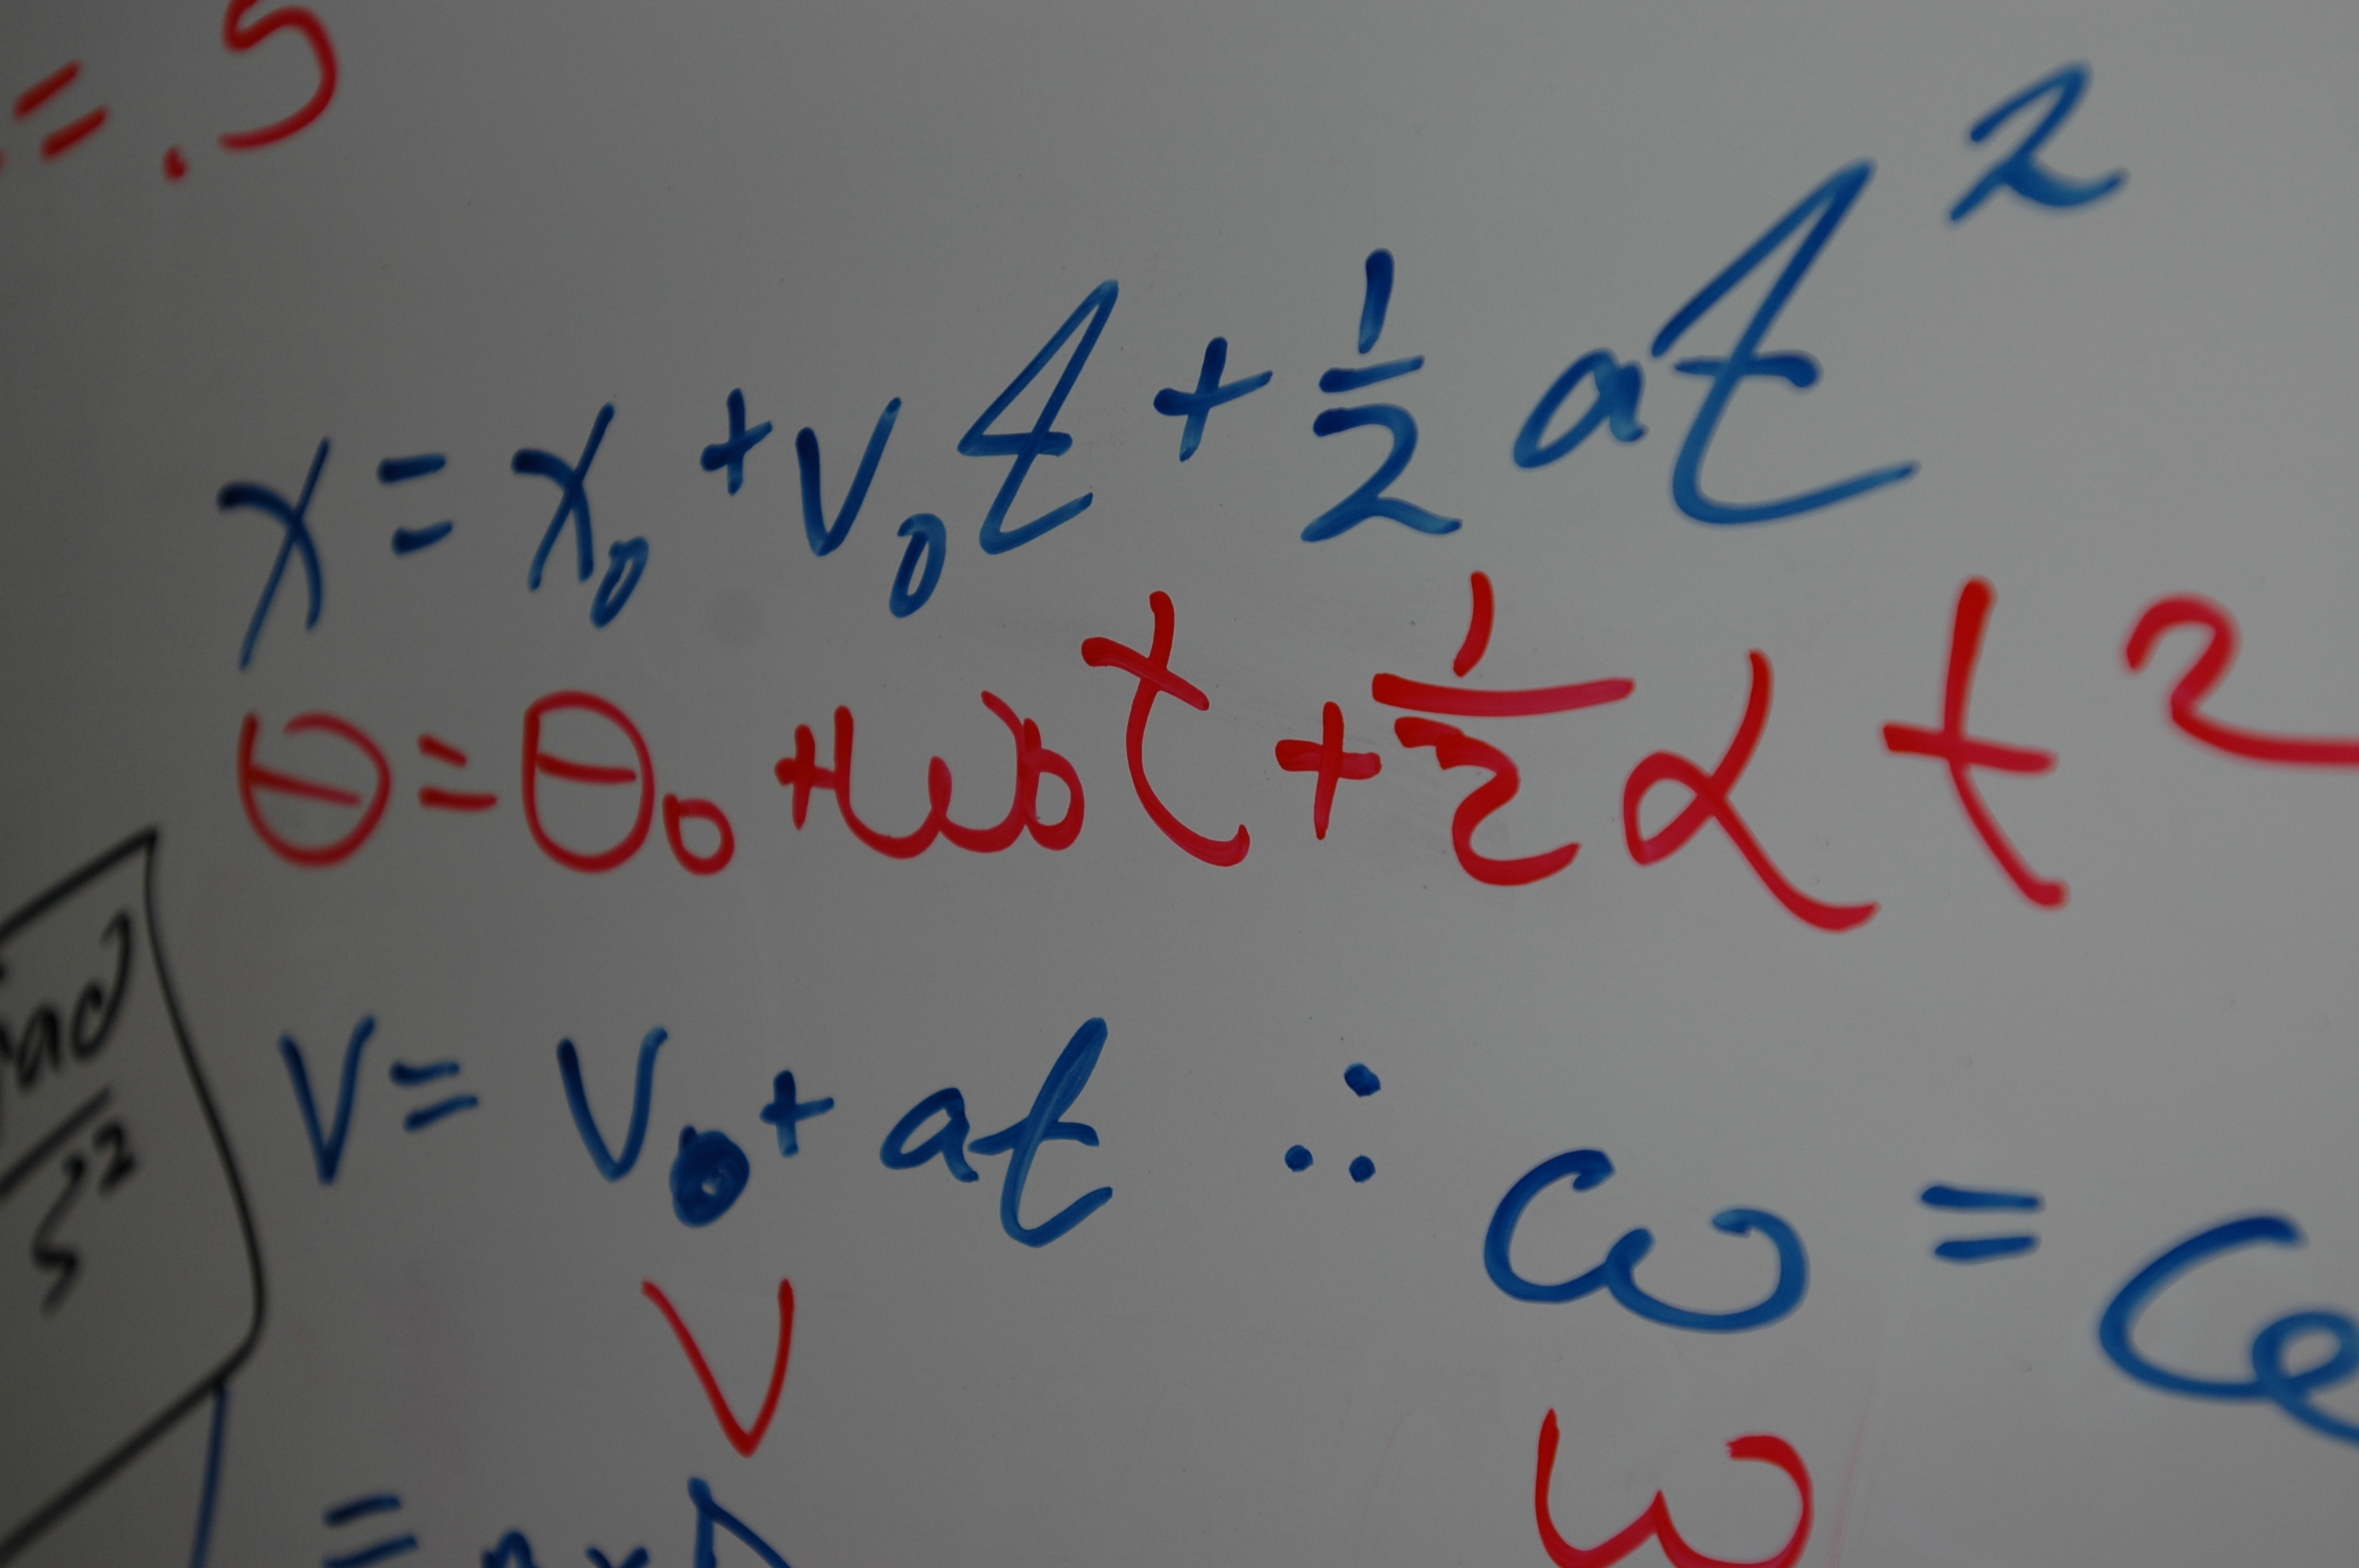 = .5
x = x₀ + v₀t + ½ at²
θ = θ₀ + ω₀t + ½ αt²
rad/s²
v = v₀ + at ∴ ω =
V
ω
=